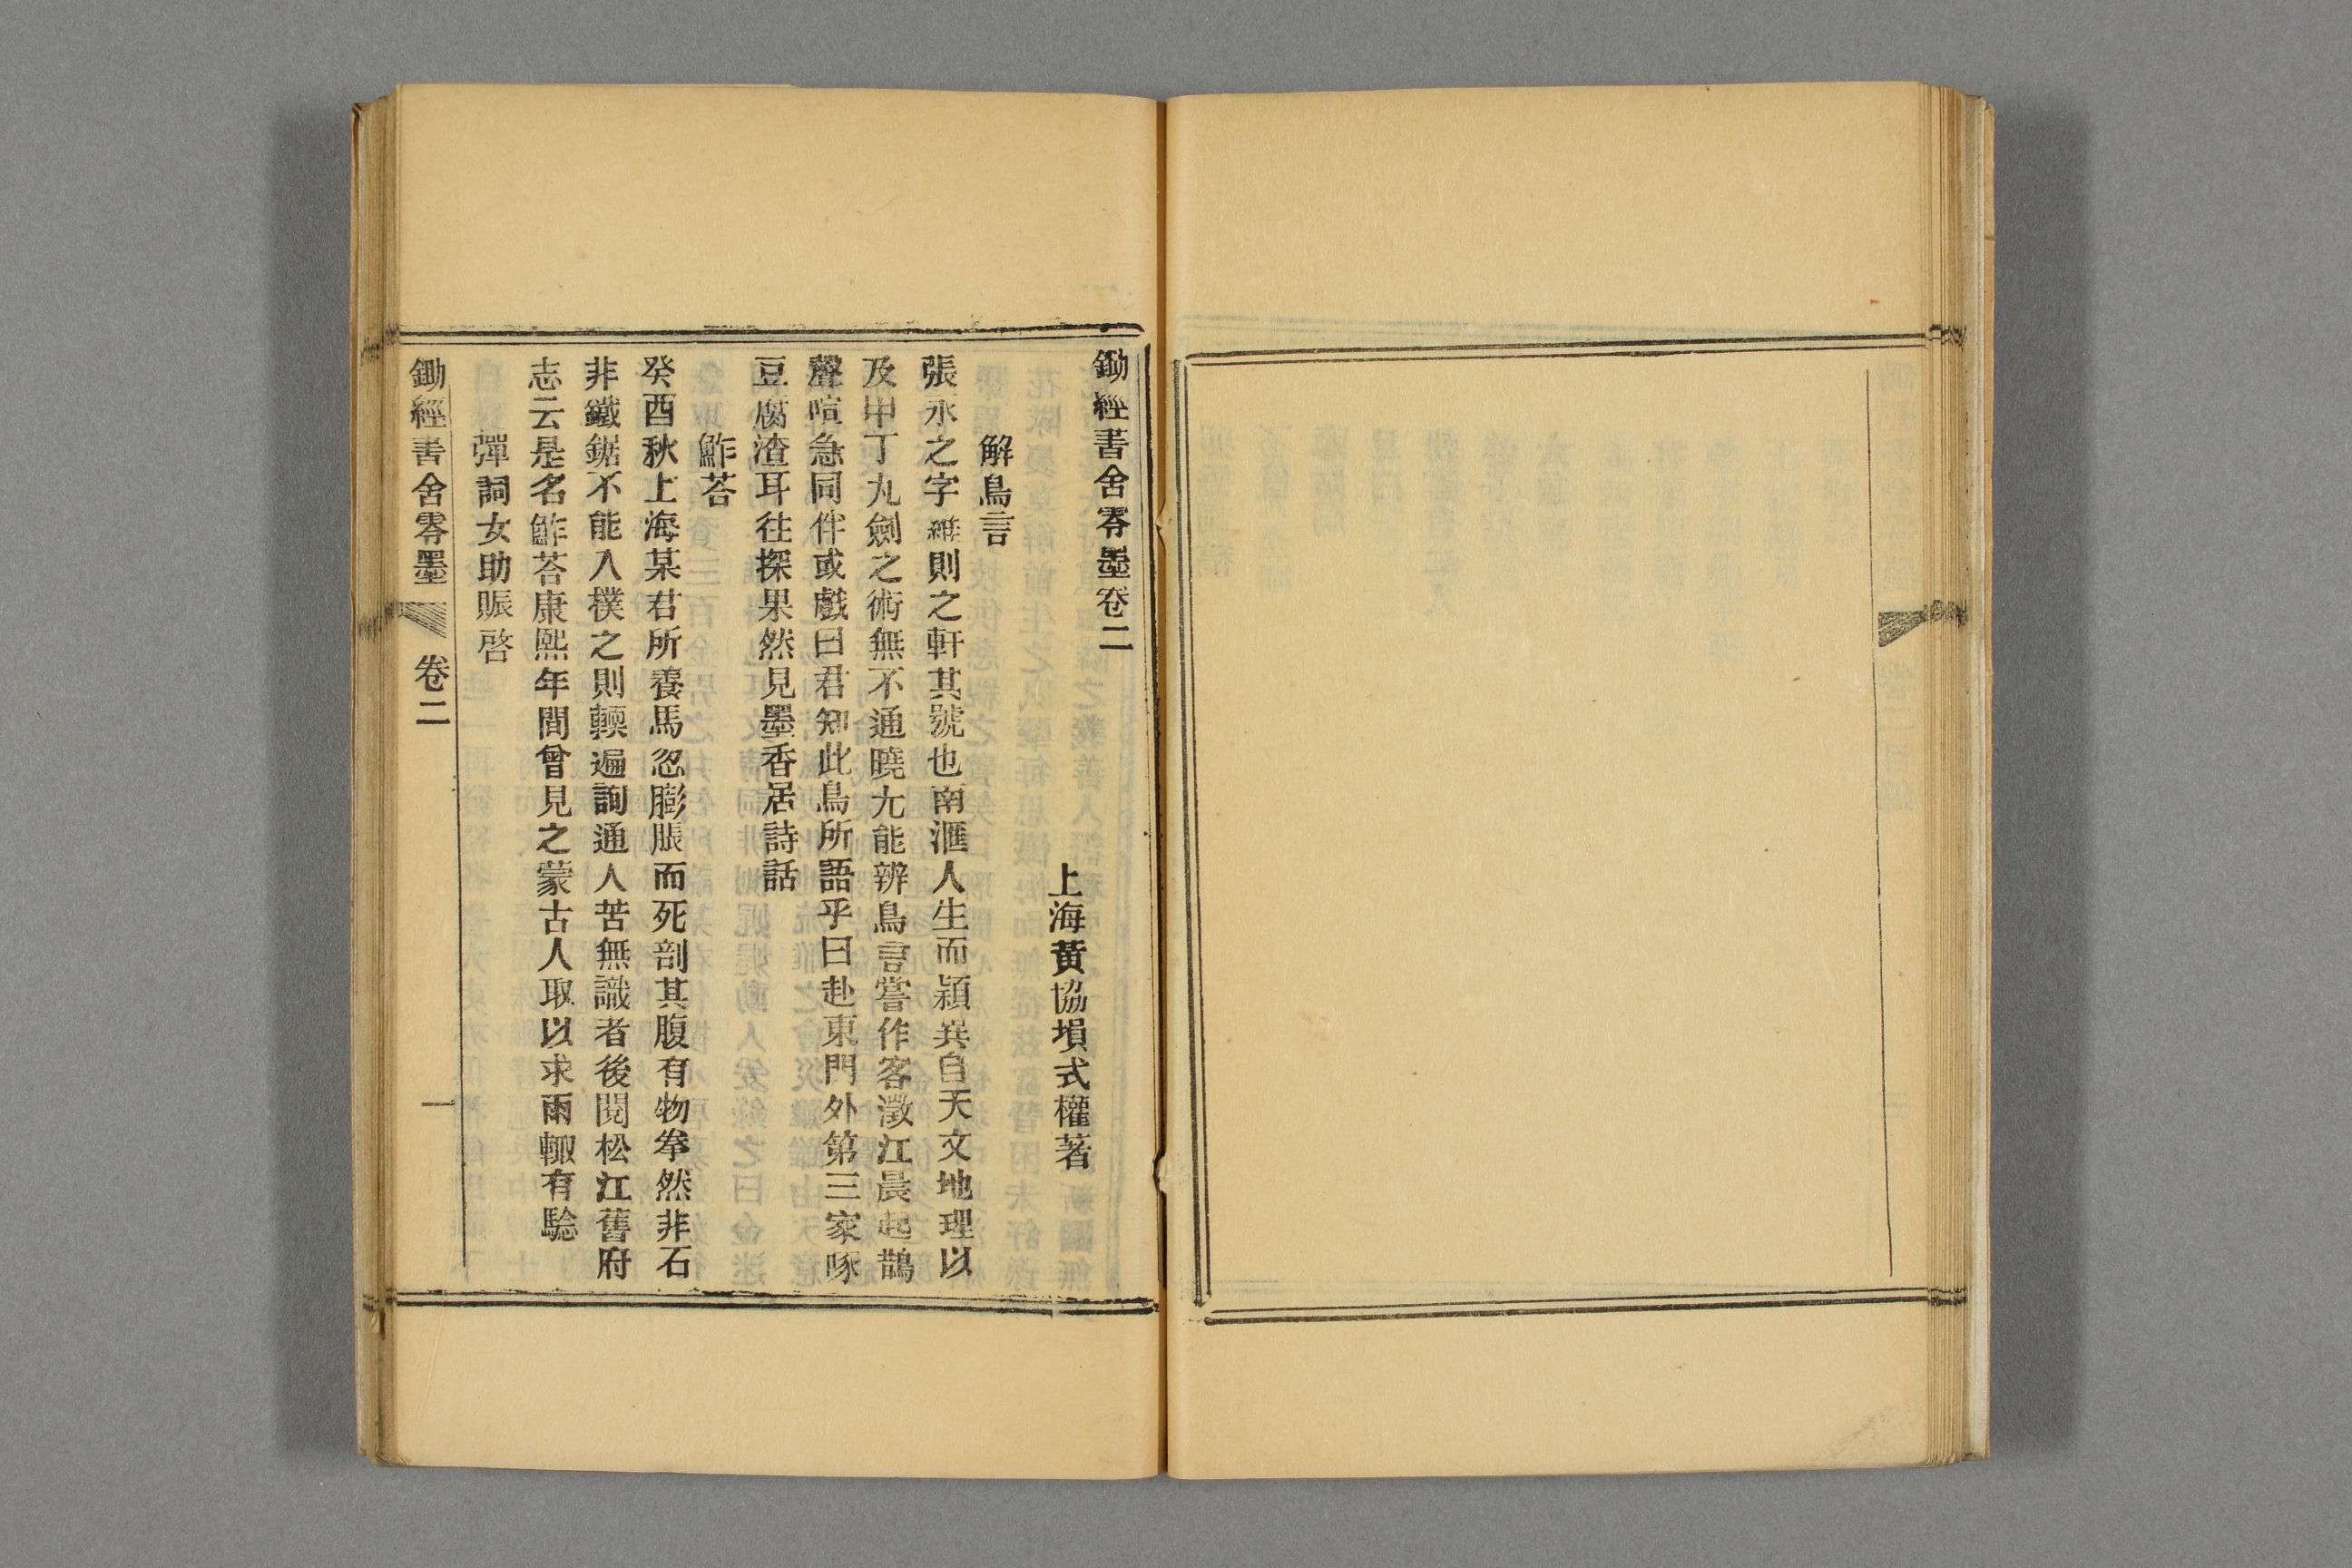 鋤經書舍零墨卷二
上海黃協塤式權著
解鳥言
張永之字維則之軒其號也南滙人生而穎異自天文地理以
及甲丁丸劍之術無不通曉尤能辨鳥言嘗作客澂江晨起鵲
聲喧急同伴或戲曰君知此鳥所語乎曰赴東門外第三家啄
豆腐渣耳往探果然見墨香居詩話
鮓荅
癸酉秋上海某君所養馬忽膨脹而死剖其腹有物拳然非石
非鐵鋸不能入撲之則輭遍詢通人苦無識者後閱松江舊府
志云是名鮓荅康熙年間曾見之蒙古人取以求雨輙有騐
彈詞女助賑啓
鋤經書舍零墨 卷二 一